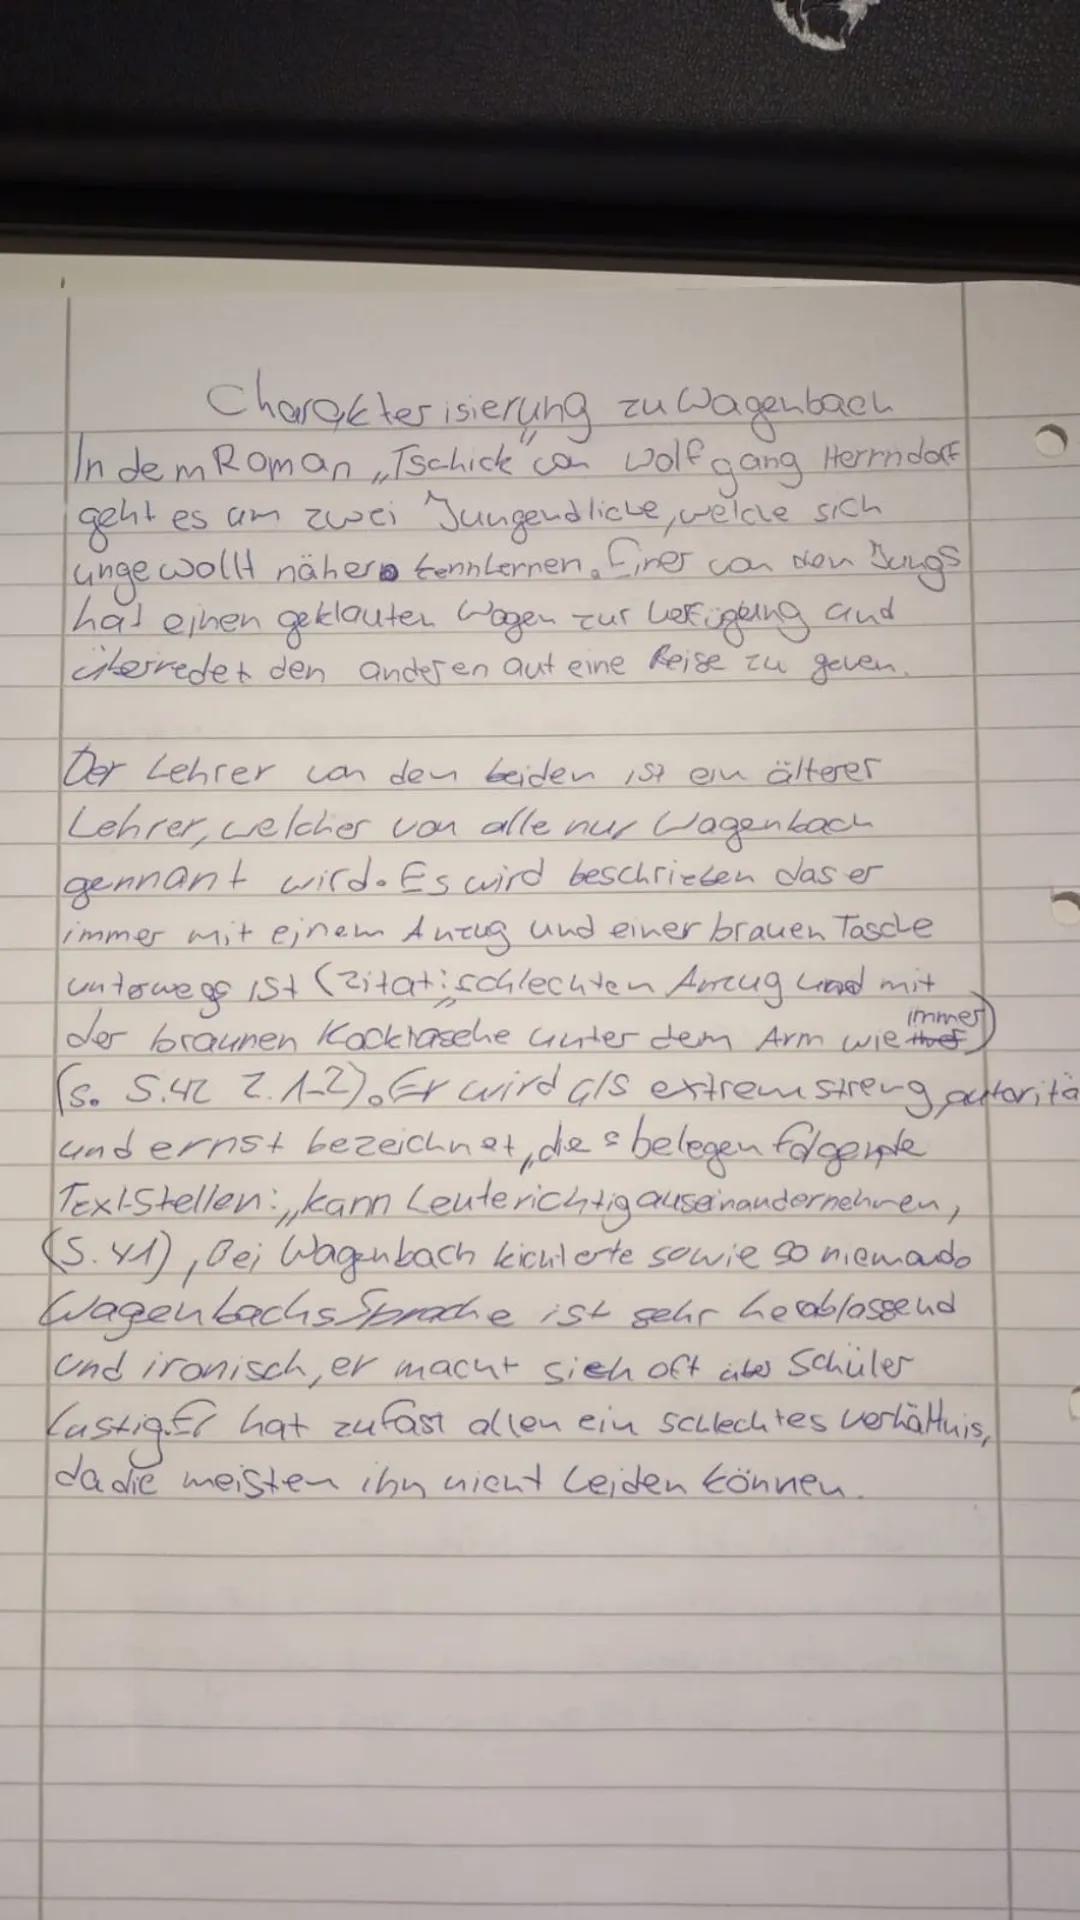 Charakterisierung zu Wagenbach
In dem Roman „Tschick" von Wolfgang Herrndorf
geht es um zwei Jungendliche, welche sich
ungewollt näher kennlernen. Einer von den Jungs
hat einen geklauten Wagen zur Verfügung und
überredet den anderen auf eine Reise zu gehen.
Der Lehrer von den beiden ist ein älterer
Lehrer, welcher von alle nur Wagenbach
gennant wird. Es wird beschrieben das er
immer mit einem Anzug und einer brauen Tasche
unterwegs ist (Zitat: „schlechten Anzug und mit
der braunen Kacktasche unter dem Arm wie immer)
(s. S.42 Z. 1-2). Er wird als extrem streng, autoritä
und ernst bezeichnet, dies belegen folgende
Textstellen: „kann Leute richtig auseinandernehmen,
(S. 41), Bei Wagenbach kicherte sowie so niemand.
Wagenbachs Sprache ist sehr herablassend
und ironisch, er macht sich oft über Schüler
lustig. Er hat zu fast allen ein schlechtes verhältnis,
da die meisten ihn nicht leiden können.